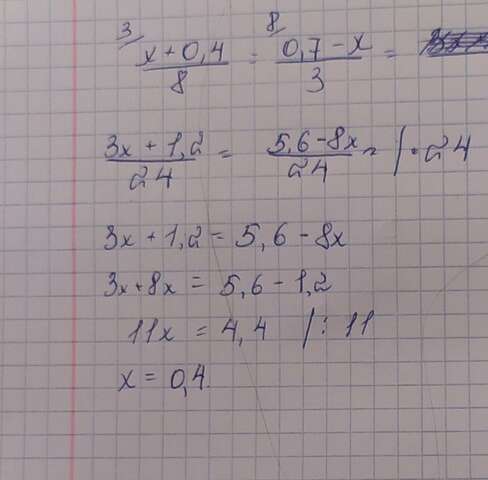 3/ x + 0,4 / 8 = 8/ 0,7 - x / 3 =
3x + 1,2 / 24 = 5,6 - 8x / 24 = | · 24
3x + 1,2 = 5,6 - 8x
3x + 8x = 5,6 - 1,2
11x = 4,4 | : 11
x = 0,4.